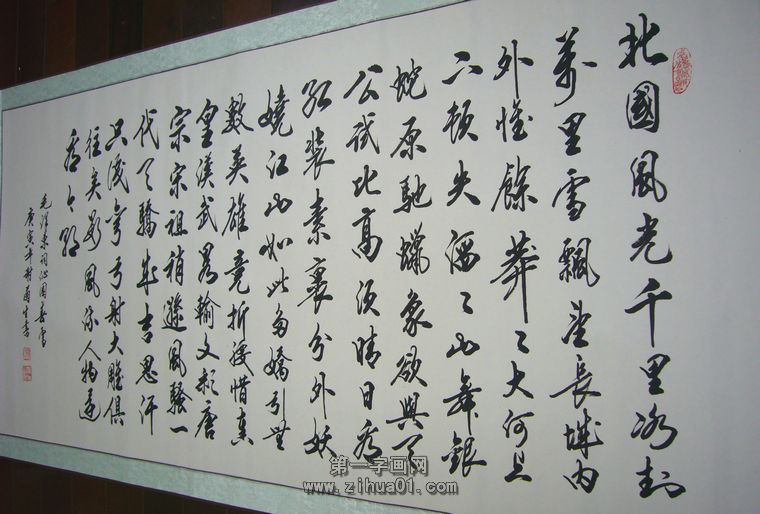 北國風光千里冰封
萬里雪飄望長城內
外惟餘莽〻大河上
下頓失滔〻山舞銀
蛇原馳蠟象欲與天
公試比高須晴日看
紅裝素裹分外妖
嬈江山如此多嬌引無
數英雄競折腰惜秦
皇漢武略輸文彩唐
宗宋祖稍遜風騷一
代天驕成吉思汗
只識彎弓射大雕俱
往矣數風流人物還
看今朝
毛澤東詞沁園春雪
庚寅年
第一字画网
www.zihua01.com